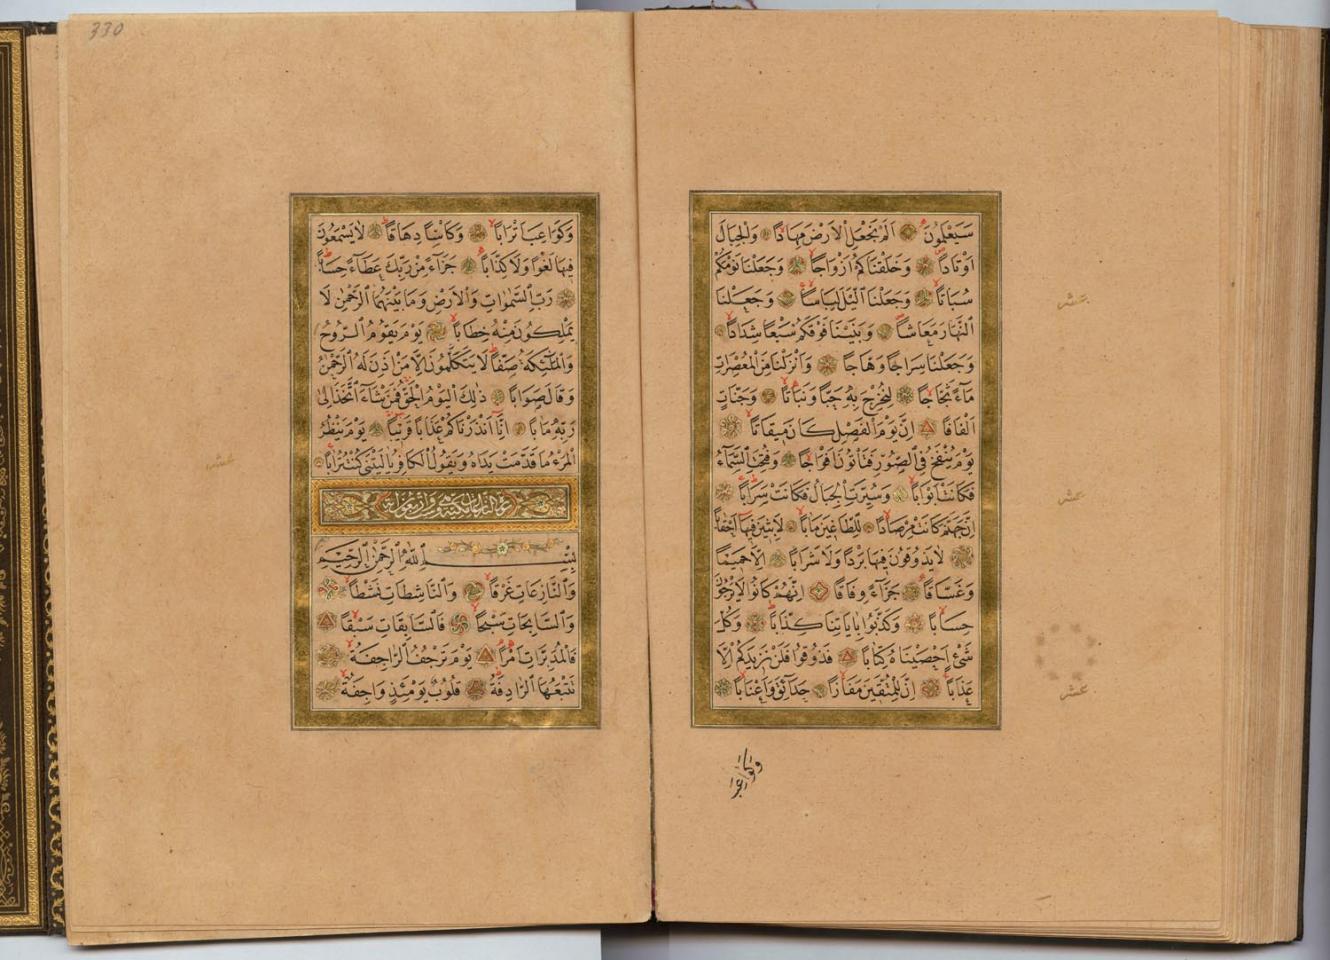 سَيَعْلَمُونَ اَلَمْ نَجْعَلِ الْاَرْضَ مِهَادًا وَالْجِبَالَ
اَوْتَادًا وَخَلَقْنَاكُمْ اَزْوَاجًا وَجَعَلْنَا نَوْمَكُمْ
سُبَاتًا وَجَعَلْنَا الَّيْلَ لِبَاسًا وَجَعَلْنَا
النَّهَارَ مَعَاشًا وَبَنَيْنَا فَوْقَكُمْ سَبْعًا شِدَادًا
وَجَعَلْنَا سِرَاجًا وَهَّاجًا وَاَنْزَلْنَا مِنَ الْمُعْصِرَاتِ
مَاءً ثَجَّاجًا لِنُخْرِجَ بِهِ حَبًّا وَنَبَاتًا وَجَنَّاتٍ
اَلْفَافًا اِنَّ يَوْمَ الْفَصْلِ كَانَ مِيقَاتًا
يَوْمَ يُنْفَخُ فِي الصُّورِ فَتَأْتُونَ اَفْوَاجًا وَفُتِحَتِ السَّمَاءُ
فَكَانَتْ اَبْوَابًا وَسُيِّرَتِ الْجِبَالُ فَكَانَتْ سَرَابًا
اِنَّ جَهَنَّمَ كَانَتْ مِرْصَادًا لِلطَّاغِينَ مَاٰبًا لَابِثِينَ فِيهَا اَحْقَابًا
لَا يَذُوقُونَ فِيهَا بَرْدًا وَلَا شَرَابًا اِلَّا حَمِيمًا
وَغَسَّاقًا جَزَاءً وِفَاقًا اِنَّهُمْ كَانُوا لَا يَرْجُونَ
حِسَابًا وَكَذَّبُوا بِاٰيَاتِنَا كِذَّابًا وَكُلَّ
شَيْءٍ اَحْصَيْنَاهُ كِتَابًا فَذُوقُوا فَلَنْ نَزِيدَكُمْ اِلَّا
عَذَابًا اِنَّ لِلْمُتَّقِينَ مَفَازًا حَدَائِقَ وَاَعْنَابًا
وَكَوَاعِبَ
عشر
عشر
عشر
330
وَكَوَاعِبَ اَتْرَابًا وَكَأْسًا دِهَاقًا لَا يَسْمَعُونَ
فِيهَا لَغْوًا وَلَا كِذَّابًا جَزَاءً مِنْ رَبِّكَ عَطَاءً حِسَابًا
رَبِّ السَّمٰوَاتِ وَالْاَرْضِ وَمَا بَيْنَهُمَا الرَّحْمٰنِ لَا
يَمْلِكُونَ مِنْهُ خِطَابًا يَوْمَ يَقُومُ الرُّوحُ
وَالْمَلٰئِكَةُ صَفًّا لَا يَتَكَلَّمُونَ اِلَّا مَنْ اَذِنَ لَهُ الرَّحْمٰنُ
وَقَالَ صَوَابًا ذٰلِكَ الْيَوْمُ الْحَقُّ فَمَنْ شَاءَ اتَّخَذَ اِلٰى
رَبِّهِ مَاٰبًا اِنَّا اَنْذَرْنَاكُمْ عَذَابًا قَرِيبًا يَوْمَ يَنْظُرُ
الْمَرْءُ مَا قَدَّمَتْ يَدَاهُ وَيَقُولُ الْكَافِرُ يَا لَيْتَنِي كُنْتُ تُرَابًا
بِسْمِ اللهِ الرَّحْمٰنِ الرَّحِيمِ
وَالنَّازِعَاتِ غَرْقًا وَالنَّاشِطَاتِ نَشْطًا
وَالسَّابِحَاتِ سَبْحًا فَالسَّابِقَاتِ سَبْقًا
فَالْمُدَبِّرَاتِ اَمْرًا يَوْمَ تَرْجُفُ الرَّاجِفَةُ
تَتْبَعُهَا الرَّادِفَةُ قُلُوبٌ يَوْمَئِذٍ وَاجِفَةٌ
عشر